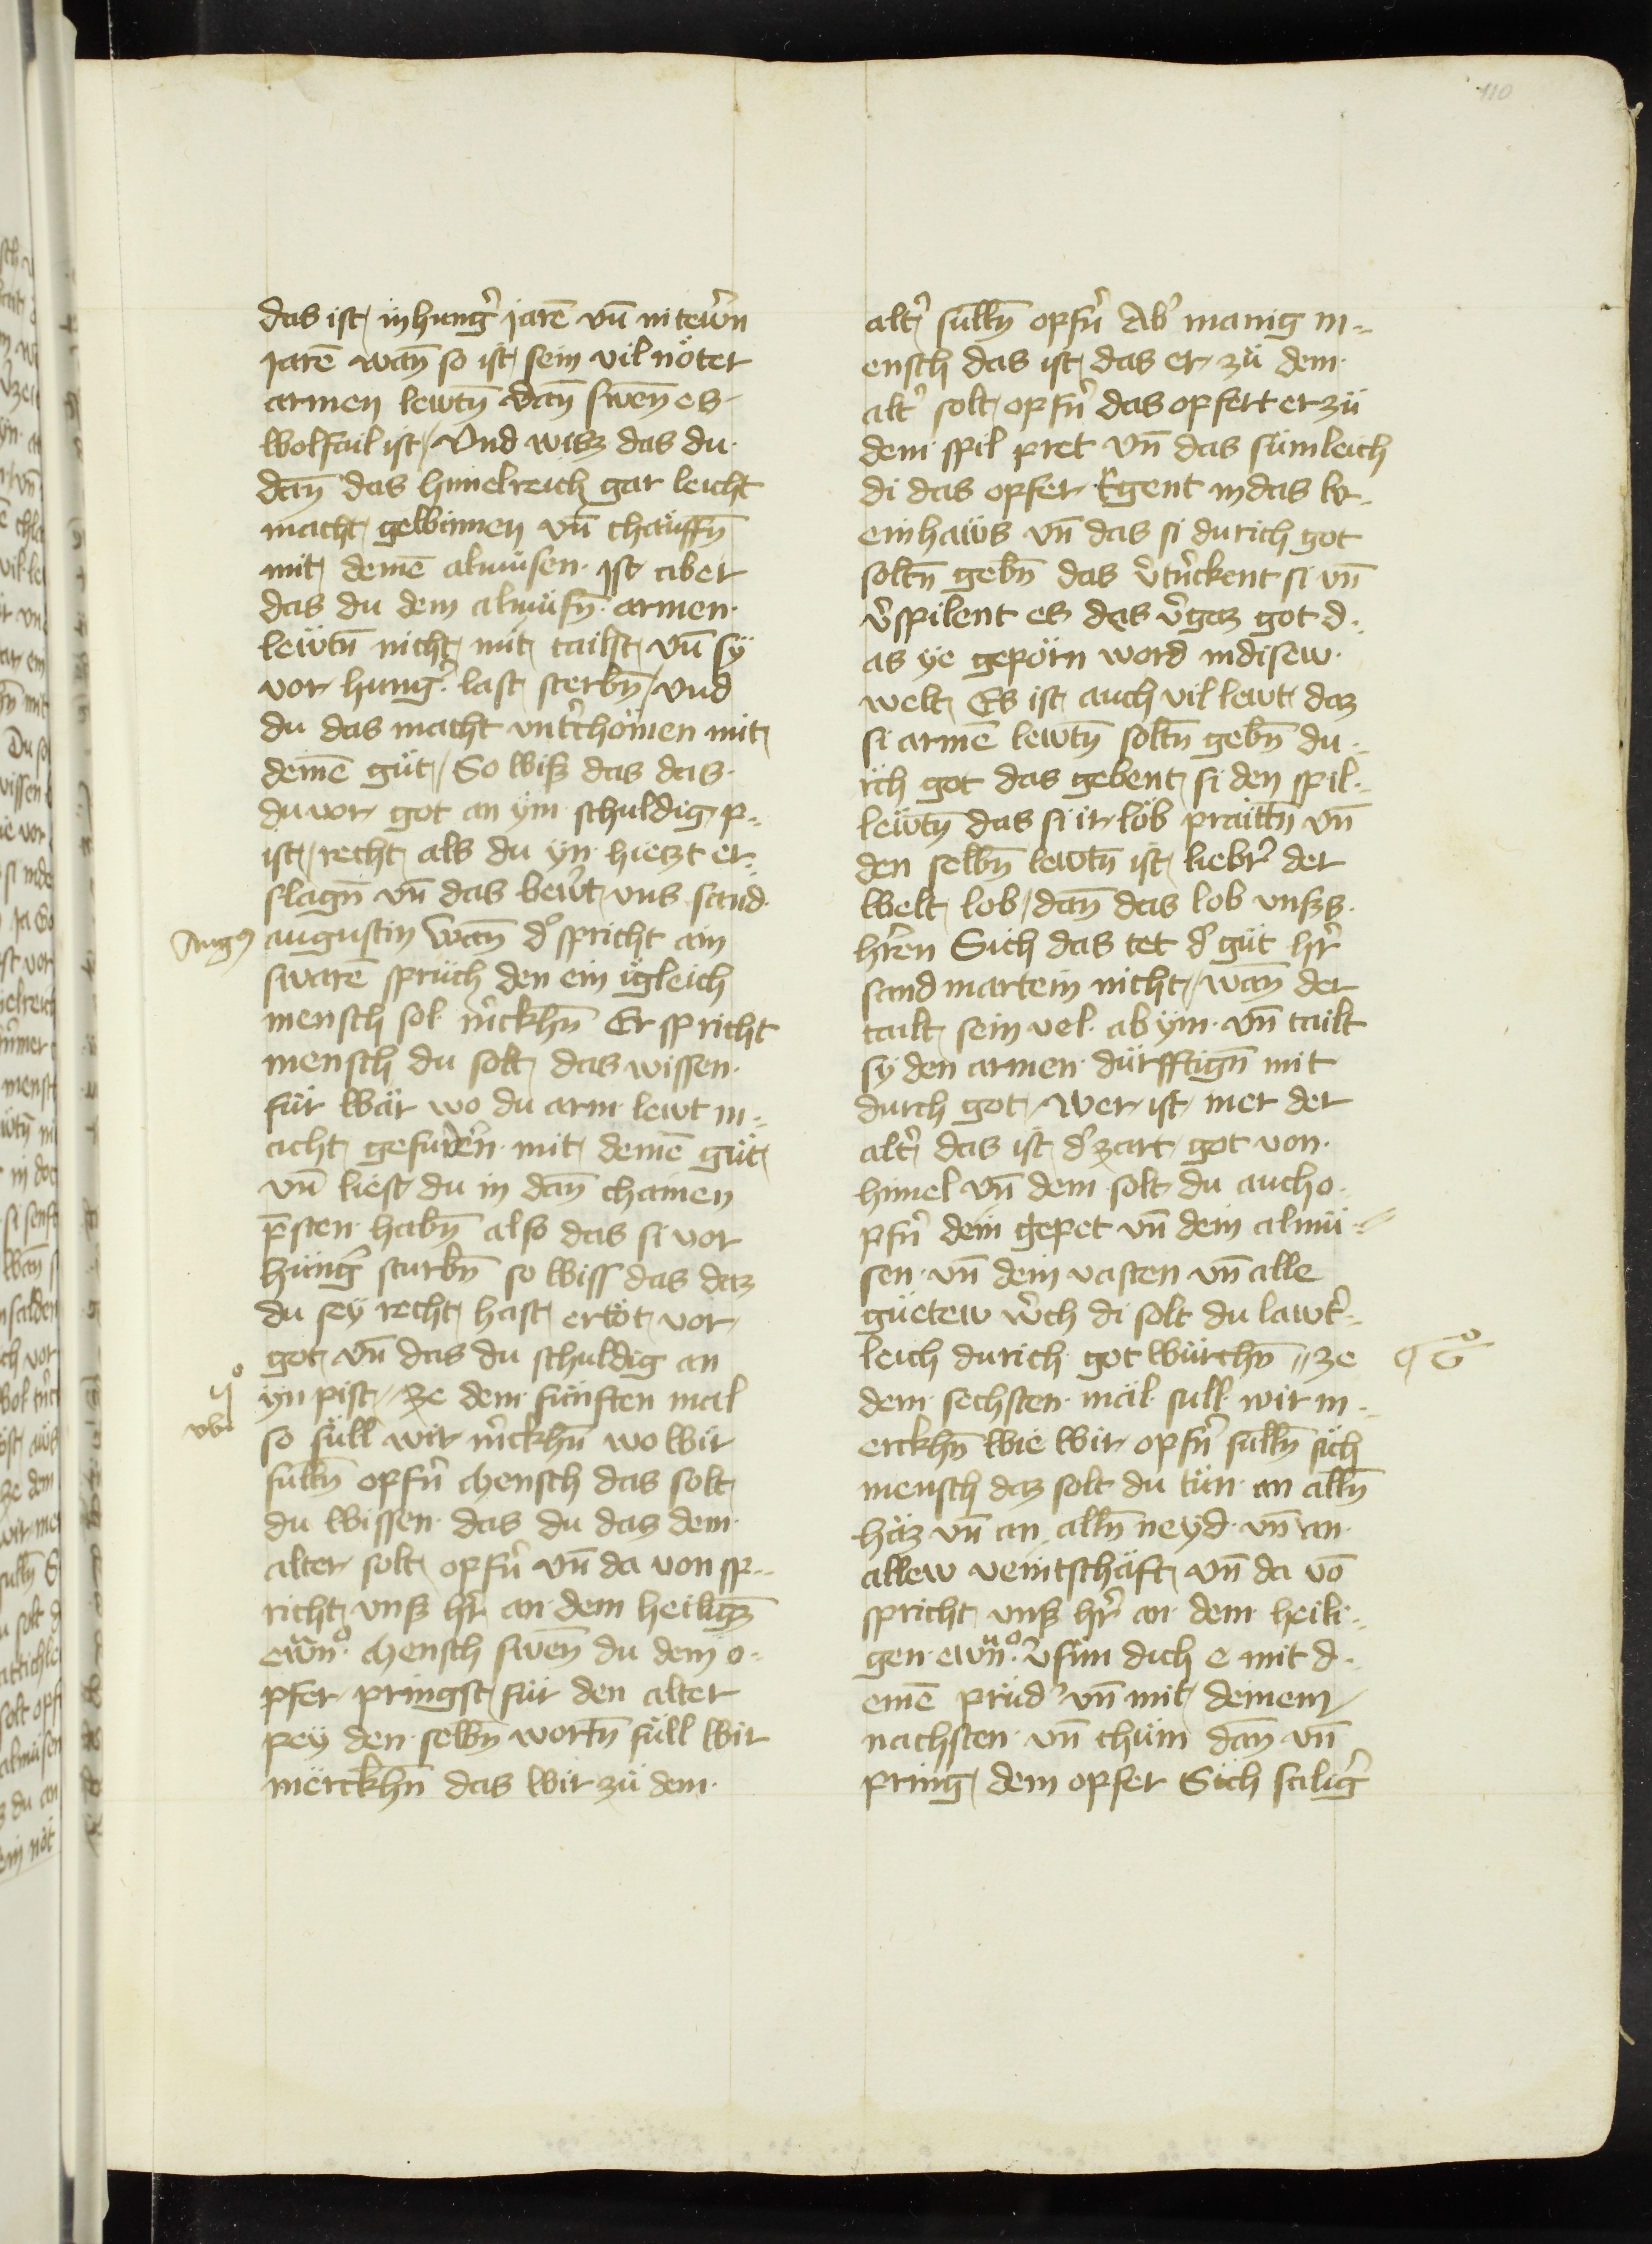 110
das ist in hung̉ jarē vn̄ in tew̉n
jarē wan̄ so ist sein vil nöter
armen lewtn̄ dan̄ swen̄ es
wolfail ist Vnd wisz das du
dan̄ das himelreich gar leicht
macht gewinnen vn̄ chauffn̄
mit deinē almüsen Ist aber
das du dem almüsn̄ armen
lewtn̄ nicht mit tailst vn̄ sÿ
vor hung̉ last sterbn̄ vnd
du das macht vnt̉chömen mit
deinē güt So wiss das das
du vor got an ym schuldig p
ist recht als du yn hietzt er
slagn̄ vn̄ das bew̉t vns sand
Aug9
augustin wan̄ d̉ spricht ain
swarē sprüch den ein igleich
mensch sol m̉ckhn̄ Er spricht
mensch du solt das wissen
für war wo du arm lewt m
acht gefudern mit deinē güt
vn̄ liest du in dan̄ chainen
p̄sten habn̄ also das si vor
hüng̉ sturbn̄ so wiss das daz
du seÿ recht hast ertöt vor
got vn̄ das du schuldig an
yn pist ze dem fünften mal
vbi
so süll wir m̉ckhn̄ wo wir
sulln̄ opfn̉ Mensch das solt
du wissen das du das dem
alter solt opfn̉ vn̄ da von sp
richt vnsz hr̉ an dem heiliḡ
ewn̄ Mensch swen̄ du dein o
pfer pringst für den alter
peÿ den selbn̄ wortn̄ süll wir
merckhn̄ das wir zü dem
alt̉ sulln̄ opfn̉ Ab̉ manig m
ensch das ist das er zü dem
alt̉ solt opfn̉ das opfert er zü
dem spil pret vn̄ das sümleich
di das opfer tgent in das w
einhaüs vn̄ das si durich got
soltn̄ gebn̄ das v̉tn̉ckent si vn̄
v̉spilent es das v̉gaz got d
as ye geporn word in disew
welt Es ist auch vil lewt daz
si armē lewtn̄ soltn̄ gebn̄ du
rich got das gebent si den spil
lewtn̄ das si ir lob praittn̄ vn̄
den selbn̄ lewtn̄ ist liebr̉ der
welt lob dan̄ das lob vnsszs
hr̉en Sich das tet d̉ güt hr̉
sand martein nicht wan̄ der
tailt sein vel ab ym vn̄ tailt
sÿ den armen dürfftign̄ mit
durch got wer ist mer der
alt̉ das ist d̉ zart got von
himel vn̄ dem solt du auch o
pfn̉ dein gepet vn̄ dein almü
sen vn̄ dein vasten vn̄ alle
güetew w̉ch di solt du lawt̉
leich durich got würchn̄ ze
dem sechsten mäl sull wir m
erckhn̄ wie wir opfn̉ sulln̄ sich
mensch daz solt du tün an alln̄
haz vn̄ an alln̄ neyd vn̄ an
allew veintschäft vn̄ da vō
spricht vnsz hr̉ an dem heili
gen ewn̄ v̉sün dich e mit d
einē prüd̉ vn̄ mit deinem
nachsten vn̄ chüm dan̄ vn̄
pring dein opfer Sich salig̉